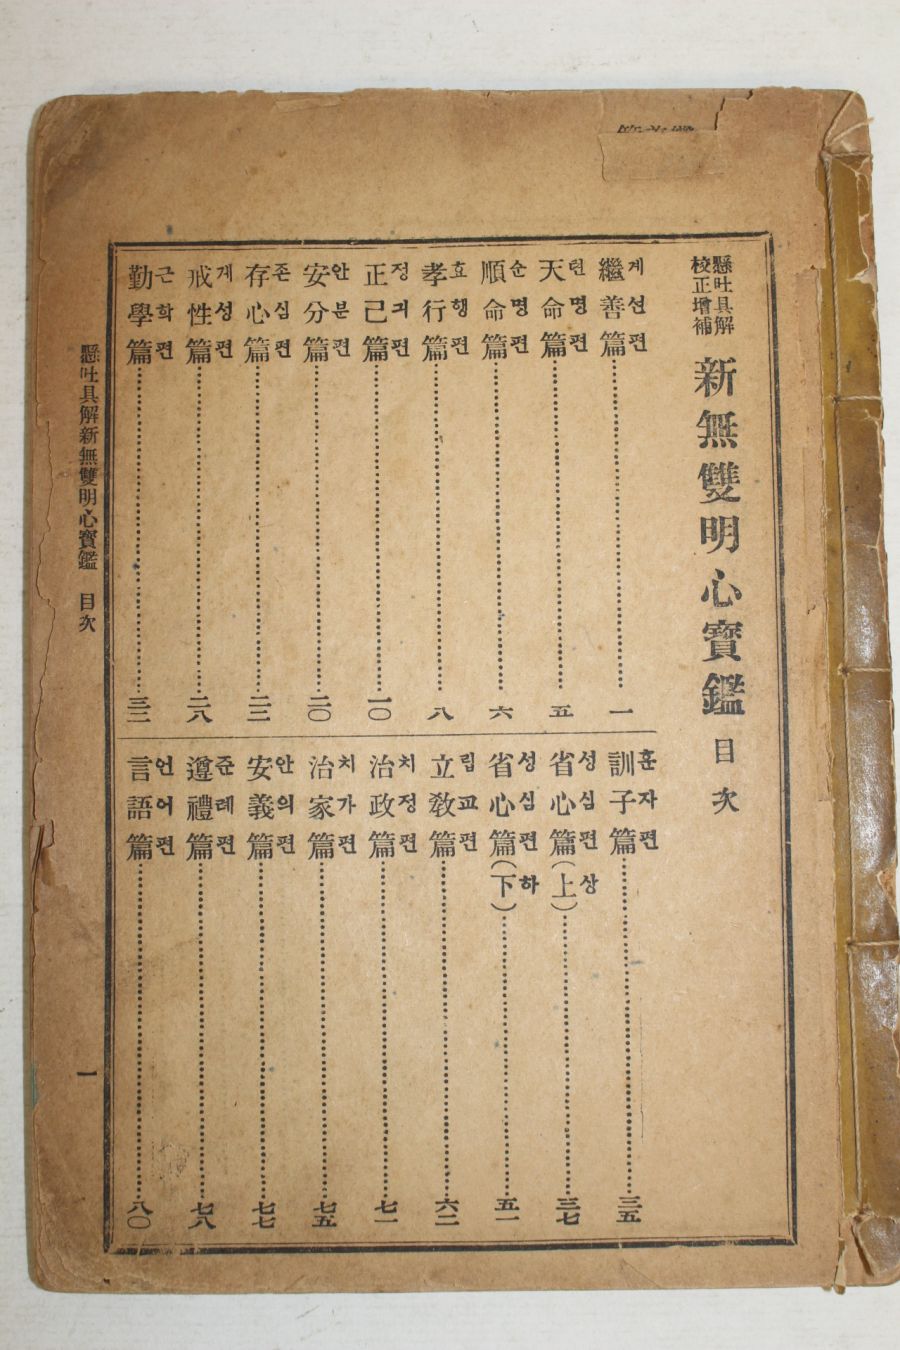 懸吐具解
校正增補
新無雙明心寶鑑 目次
繼善篇 계선편 一
天命篇 텬명편 五
順命篇 순명편 六
孝行篇 효행편 八
正己篇 정긔편 一〇
安分篇 안분편 二〇
存心篇 존심편 二二
戒性篇 계성편 二八
勤學篇 근학편 三二
訓子篇 훈자편 三五
省心篇(上) 성심편상 三七
省心篇(下) 성심편하 五一
立敎篇 립교편 六二
治政篇 치정편 七一
治家篇 치가편 七五
安義篇 안의편 七七
遵禮篇 준례편 七八
言語篇 언어편 八〇
懸吐具解新無雙明心寶鑑 目次
一